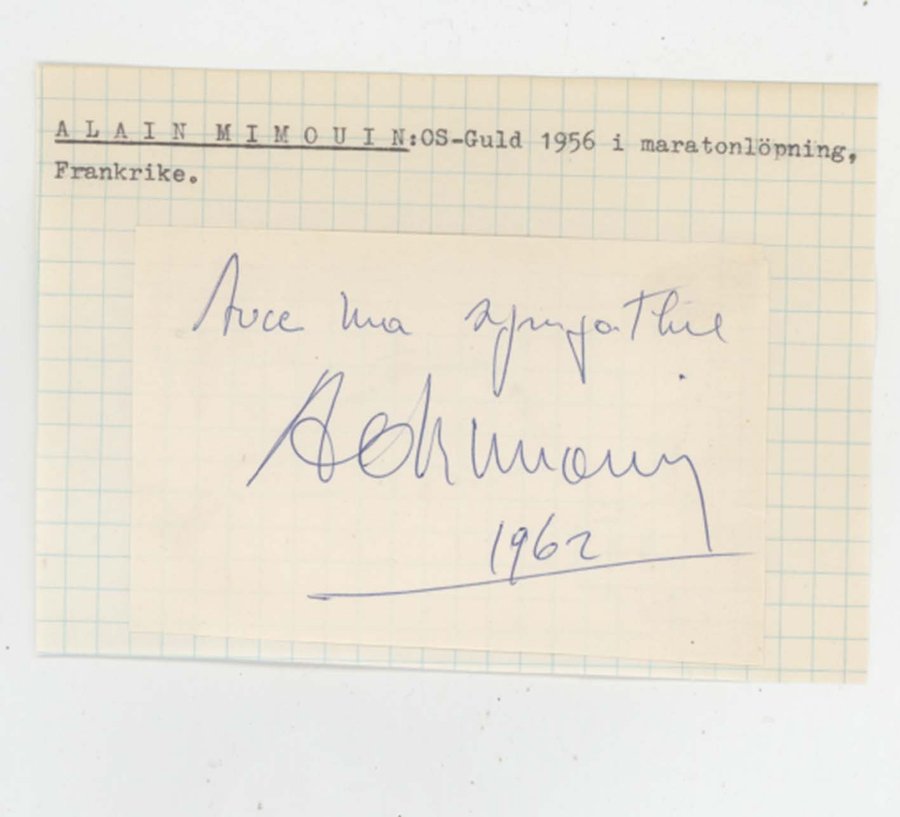 A L A I N  M I M O U I N:OS-Guld 1956 i maratonlöpning,
Frankrike.
Avec ma sympathie
1962